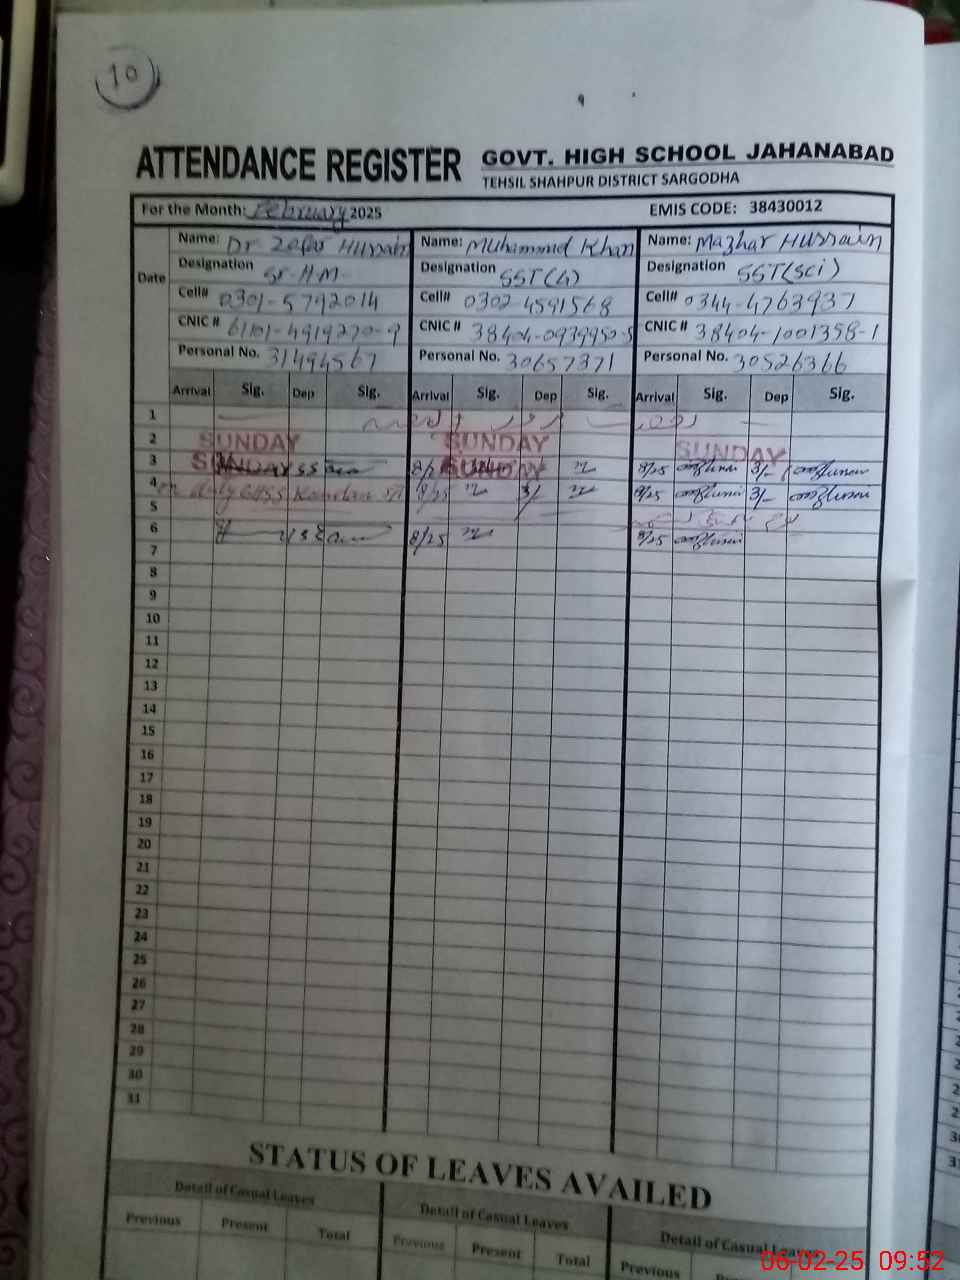 10
ATTENDANCE REGISTER GOVT. HIGH SCHOOL JAHANABAD
TEHSIL SHAHPUR DISTRICT SARGODHA
For the Month: February 2025 EMIS CODE: 38430012
Date Name: Dr Zafar Hussain Name: Muhammad Khan Name: Mazhar Hussain
Designation Sr H.M Designation SST(G) Designation SST(Sci)
Cell# 0301-5792014 Cell# 0302-4591568 Cell# 0344-4763937
CNIC # 61101-4919270-9 CNIC # 38404-0939950-5 CNIC # 38404-1001358-1
Personal No. 31494567 Personal No. 30657371 Personal No. 30526366
Arrival Sig. Dep Sig. Arrival Sig. Dep Sig. Arrival Sig. Dep Sig.
1
2 SUNDAY SUNDAY SUNDAY
3 SUNDAY SUNDAY 8/25 3/-
4 on duty GHSS 8/25 3/ 8/25 3/-
5
6 8/25 8/25
7
8
9
10
11
12
13
14
15
16
17
18
19
20
21
22
23
24
25
26
27
28
29
30
31
STATUS OF LEAVES AVAILED
Detail of Casual Leaves Detail of Casual Leaves Detail of Casual Leaves
Previous Present Total Previous Present Total Previous
06-02-25 09:52